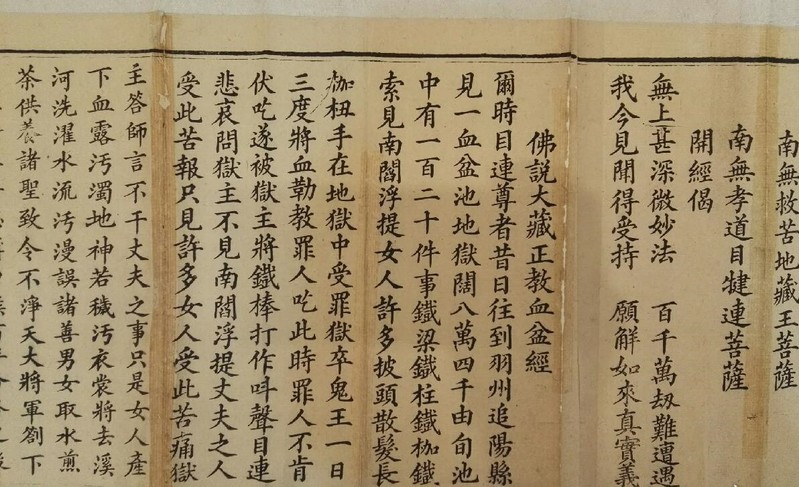 南無救苦地藏王菩薩
南無孝道目犍連菩薩
開經偈
無上甚深微妙法　百千萬劫難遭遇
我今見聞得受持　願解如來真實義
佛説大藏正教血盆經
爾時目連尊者昔日往到羽州追陽縣
見一血盆池地獄闊八萬四千由旬池
中有一百二十件事鐵梁鐵柱鐵枷鐵
索見南閻浮提女人許多披頭散髮長
枷杻手在地獄中受罪獄卒鬼王一日
三度將血勒教罪人吃此時罪人不肯
伏吃遂被獄主將鐵棒打作呌聲目連
悲哀問獄主不見南閻浮提丈夫之人
受此苦報只見許多女人受此苦痛獄
主答師言不干丈夫之事只是女人產
下血露汚濁地神若穢汚衣裳將去溪
河洗濯水流汚漫誤諸善男女取水煎
茶供養諸聖致令不淨天大將軍劄下